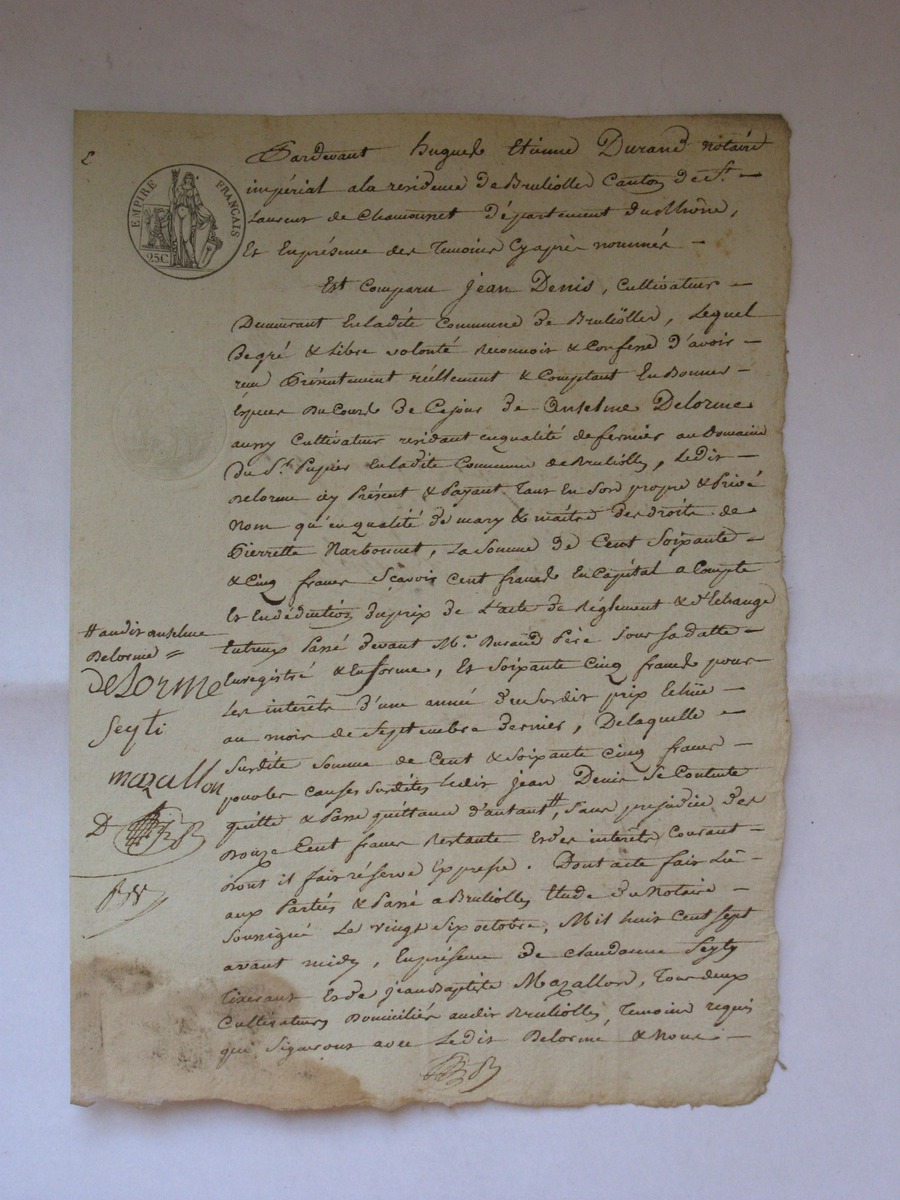 EMPIRE FRANÇAIS
25C
Pardevant hugues Etienne Durand notaire
impérial a la residence de Brulioller Canton de St. –
Laurent de Chamousset Département du Rhône,
Et En présence des Temoins Cyaprès nommés –
Est Comparu jean Denis, Cultivateur –
Demeurant En ladite Commune de Brulioller, Lequel
De gré & Libre volonté Reconnoit & Confesse D'avoir –
reçu Présentement réellement & Comptant En Bonnes –
Espèces Du Cours de Cejour de Anselme Delorme
aussy Cultivateur residant enqualité de fermier au Domaine
Du Sr. Pupier En ladite Commune de Brulioller, Ledit –
Delorme icy Présent & Payant Tant En Son propre & Privé
Nom qu'en qualité de mary & maître des droits de
Pierrette Narbonnet, La Somme de Cent Soixante –
& Cinq francs Sçavoir Cent francs En Capital a Compte
Et En déduction du prix de L'acte de Réglement & d'Echange
Entreux Passé devant Me. Durand Père Sous Sa datte –
Enregistré & En forme, Et Soixante Cinq francs pour –
Les interêts d'une année du Susdit prix Echüe –
au mois de Septembre Dernier, De laquelle –
Susdite Somme de Cent & Soixante Cinq francs –
pour les Causes Susdites Ledit jean Denis Se Contente
quitte & Passe quittance d'autant #, Sans prejudice des
Douze Cent francs Restants Et des interêts Courant –
Dont il fait réserve Expresse. Dont acte fait Lû –
aux Parties & Passé a Brulioller Etude du Notaire –
Soussigné Le Vingt Six octobre, Mil huit Cent Sept
avant midy, En présence de Claudanne Seyty
tixerant Et de jean Baptiste Mazallon, Tous deux
Cultivateurs Domiciliés audit Brulioller, Temoins requis
qui Signeront avec Ledit Delorme & Nous –
# audit anselme
Delorme =
delorme
Seyti
mazallon
D